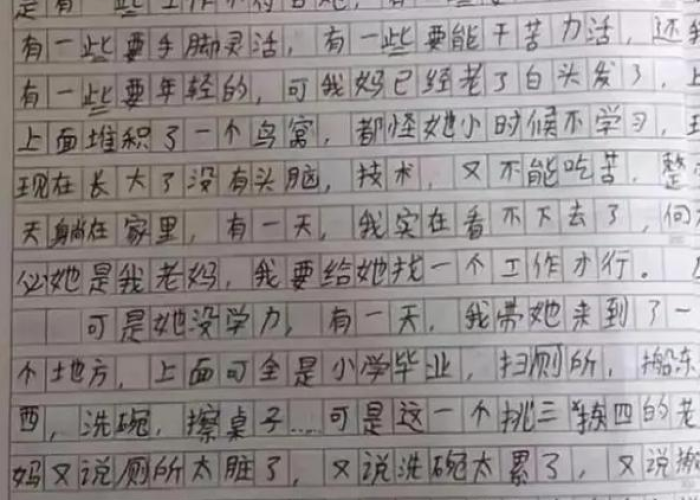 是有一些工作不符合她,有一些
有一些要手脚灵活,有一些要能干苦力活,还
有一些要年轻的,可我妈已经老了白头发了,
上面堆积了一个鸟窝,都怪她小时候不学习,
现在长大了没有头脑,技术,又不能吃苦,整
天躺在家里,有一天,我实在看不下去了,何
必她是我老妈,我要给她找一个工作才行。
可是她没学力,有一天,我带她来到了一
个地方,上面可全是小学毕业,扫厕所,搬东
西,洗碗,擦桌子……可是这一个挑三拣四的老
妈又说厕所太脏了,又说洗碗太累了,又说搬